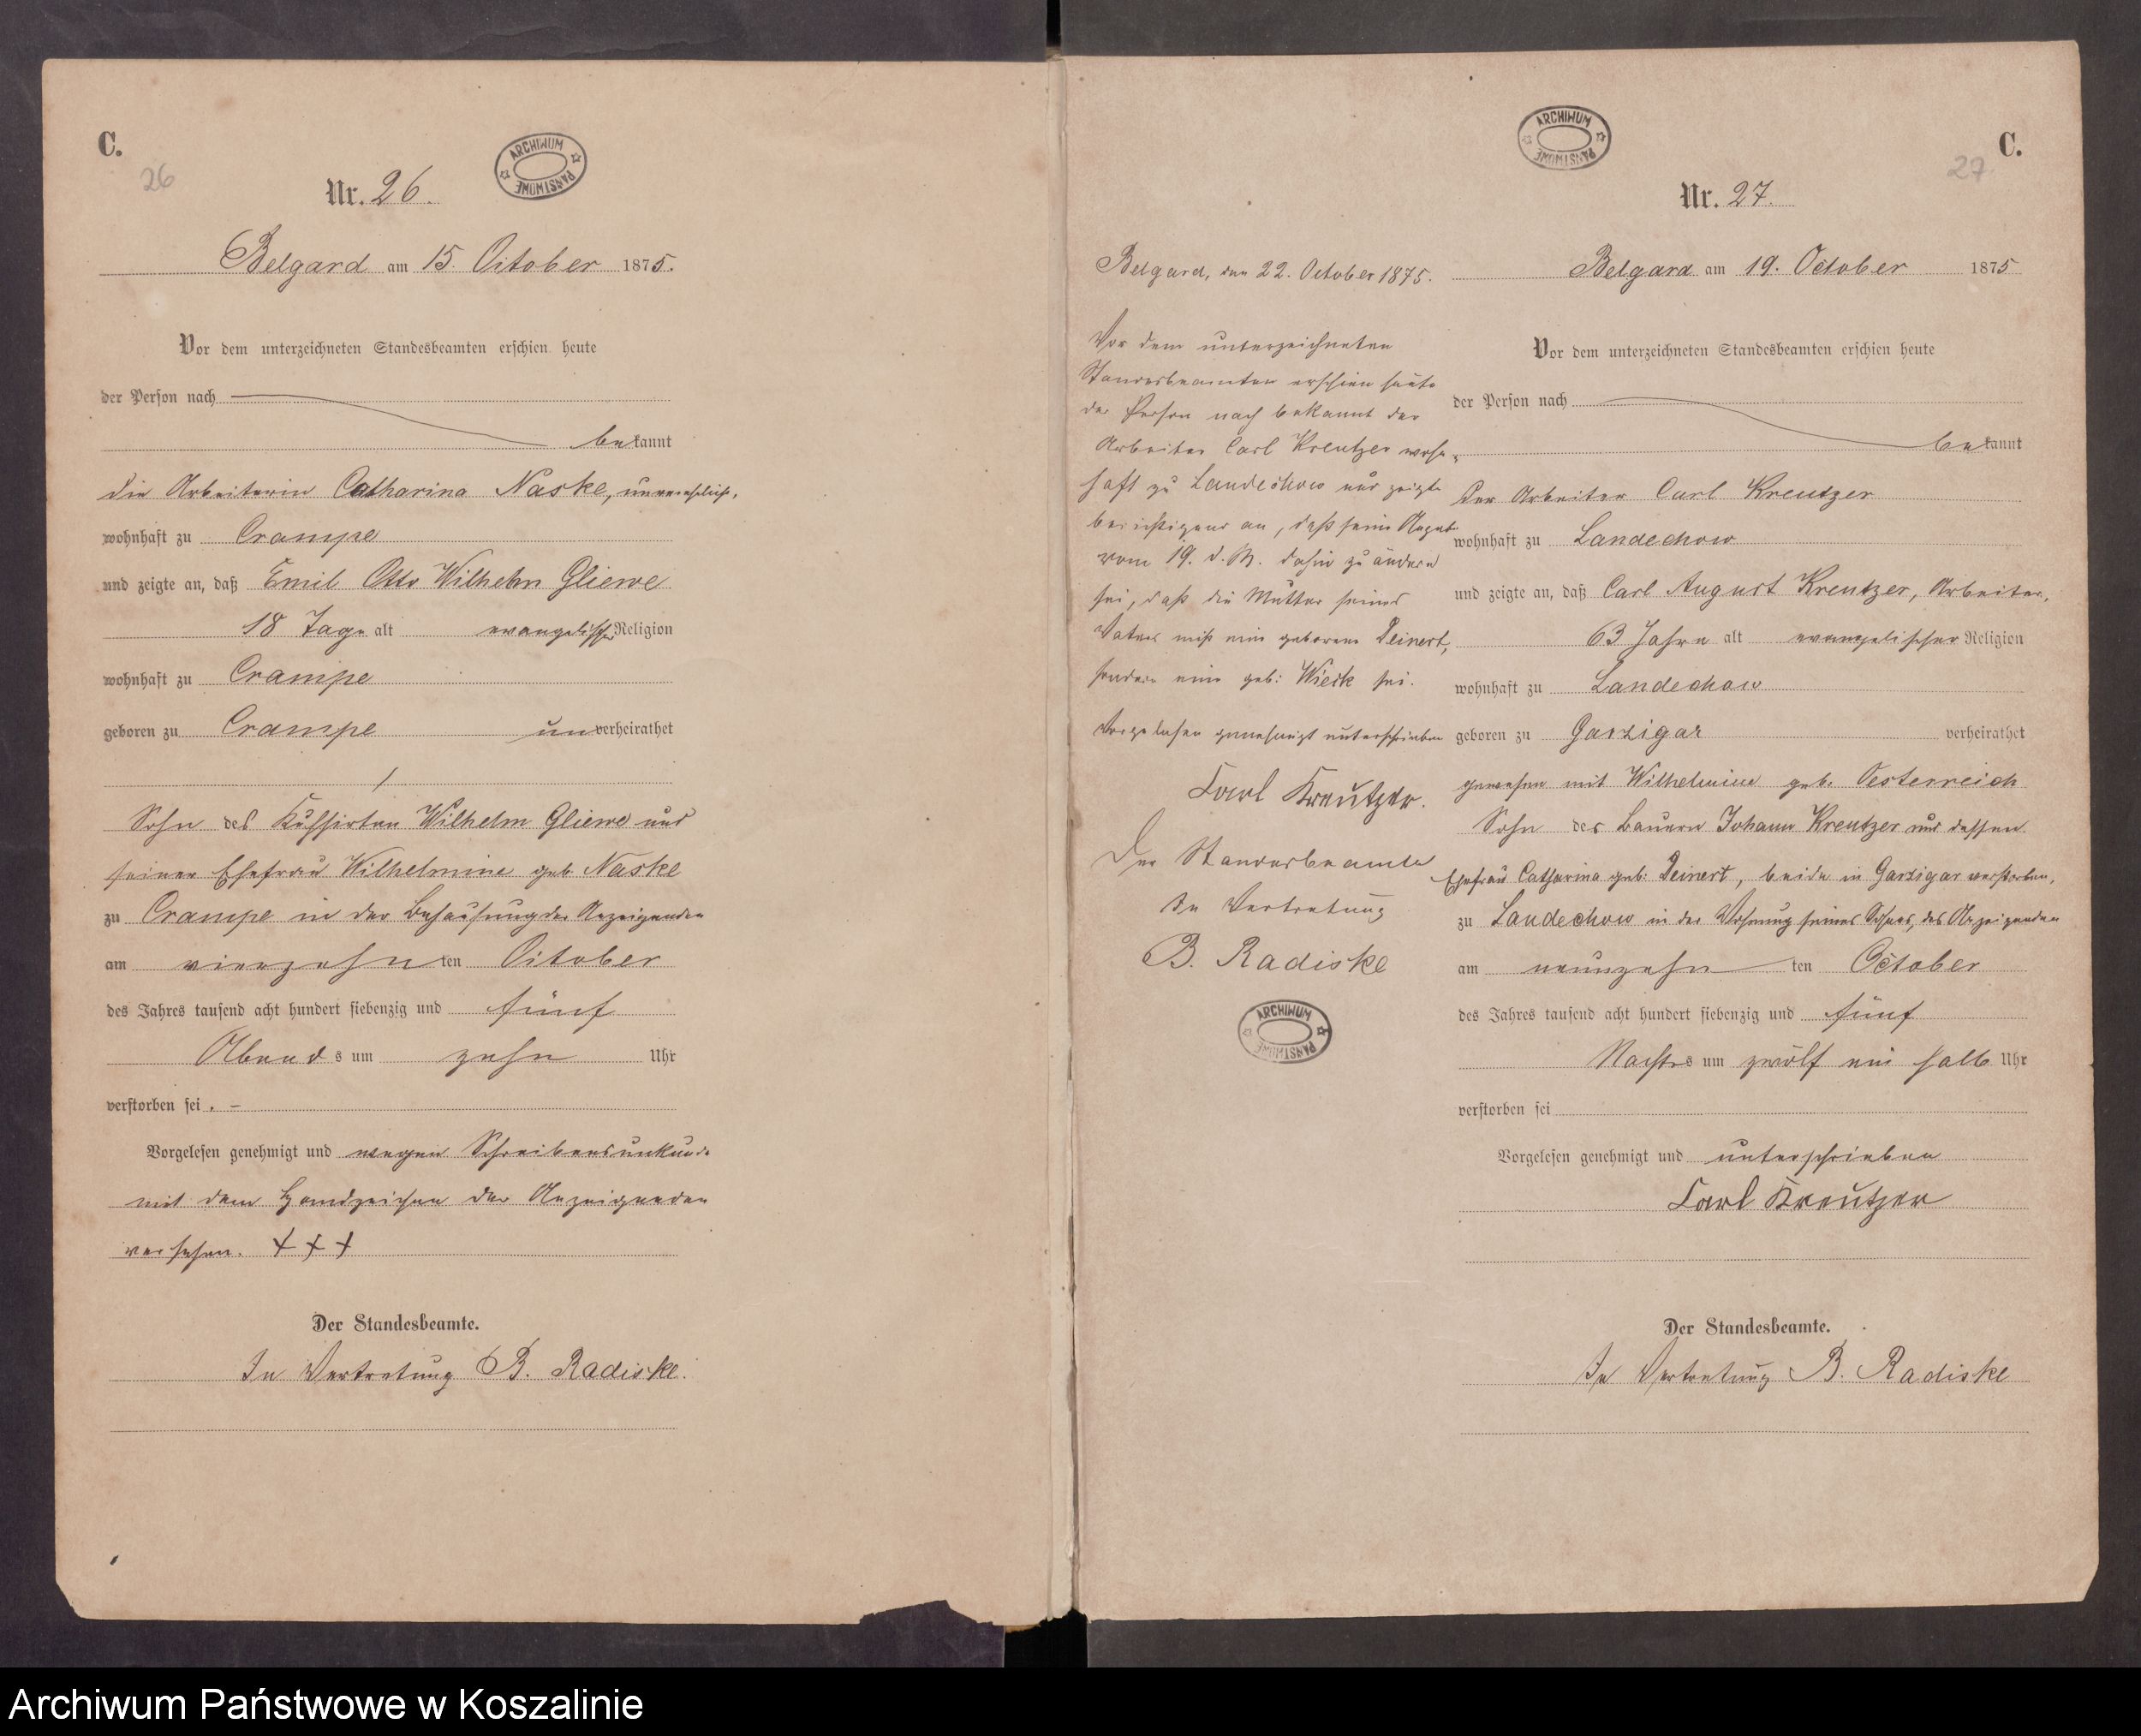 C.
26
ARCHIWUM PAŃSTWOWE
Nr. 26.
Belgard am 15. October 1875.
Vor dem unterzeichneten Standesbeamten erschien heute
der Person nach
bekannt
die Arbeiterin Catharina Naske, unverehelicht,
wohnhaft zu Crampe
und zeigte an, daß Emil Otto Wilhelm Gliewe
18 Tage alt evangelischer Religion
wohnhaft zu Crampe
geboren zu Crampe unverheirathet
Sohn des Kuhhirten Wilhelm Gliewe und
seiner Ehefrau Wilhelmine geb Naske
zu Crampe in der Behausung der Anzeigenden
am vierzehnten October
des Jahres tausend acht hundert siebenzig und fünf
Abends um zehn Uhr
verstorben sei. –
Vorgelesen genehmigt und wegen Schreibensunkunde
mit dem Handzeichen der Anzeigenden
versehen. + + +
Der Standesbeamte.
In Vertretung B. Radiske.
ARCHIWUM PAŃSTWOWE
C.
27
Nr. 27.
Belgard, den 22. October 1875.
Vor dem unterzeichneten
Standesbeamten erschien heute
der Person nach bekannt der
Arbeiter Carl Kreutzer wohn-
haft zu Landechow und zeigte
berichtigend an, daß seine Angabe
vom 19. d. M. dahin zu ändern
sei, daß die Mutter seines
Vaters nicht eine geborene Deinert,
sondern eine geb: Wieck sei.
Vorgelesen genehmigt unterschrieben
Carl Kreutzer.
Der Standesbeamte
In Vertretung
B. Radiske
ARCHIWUM PAŃSTWOWE
Belgard am 19. October 1875
Vor dem unterzeichneten Standesbeamten erschien heute
der Person nach
bekannt
der Arbeiter Carl Kreutzer
wohnhaft zu Landechow
und zeigte an, daß Carl August Kreutzer, Arbeiter,
63 Jahre alt evangelischer Religion
wohnhaft zu Landechow
geboren zu Garzigar verheirathet
gewesen mit Wilhelmine geb. Oesterreich
Sohn des Bauern Johann Kreutzer und dessen
Ehefrau Catharina geb: Deinert, beide in Garzigar verstorben,
zu Landechow in der Wohnung seines Sohnes, des Anzeigenden
am neunzehnten October
des Jahres tausend acht hundert siebenzig und fünf
Nachts um zwölf ein halb Uhr
verstorben sei
Vorgelesen genehmigt und unterschrieben
Carl Kreutzer
Der Standesbeamte.
In Vertretung B. Radiske
Archiwum Państwowe w Koszalinie